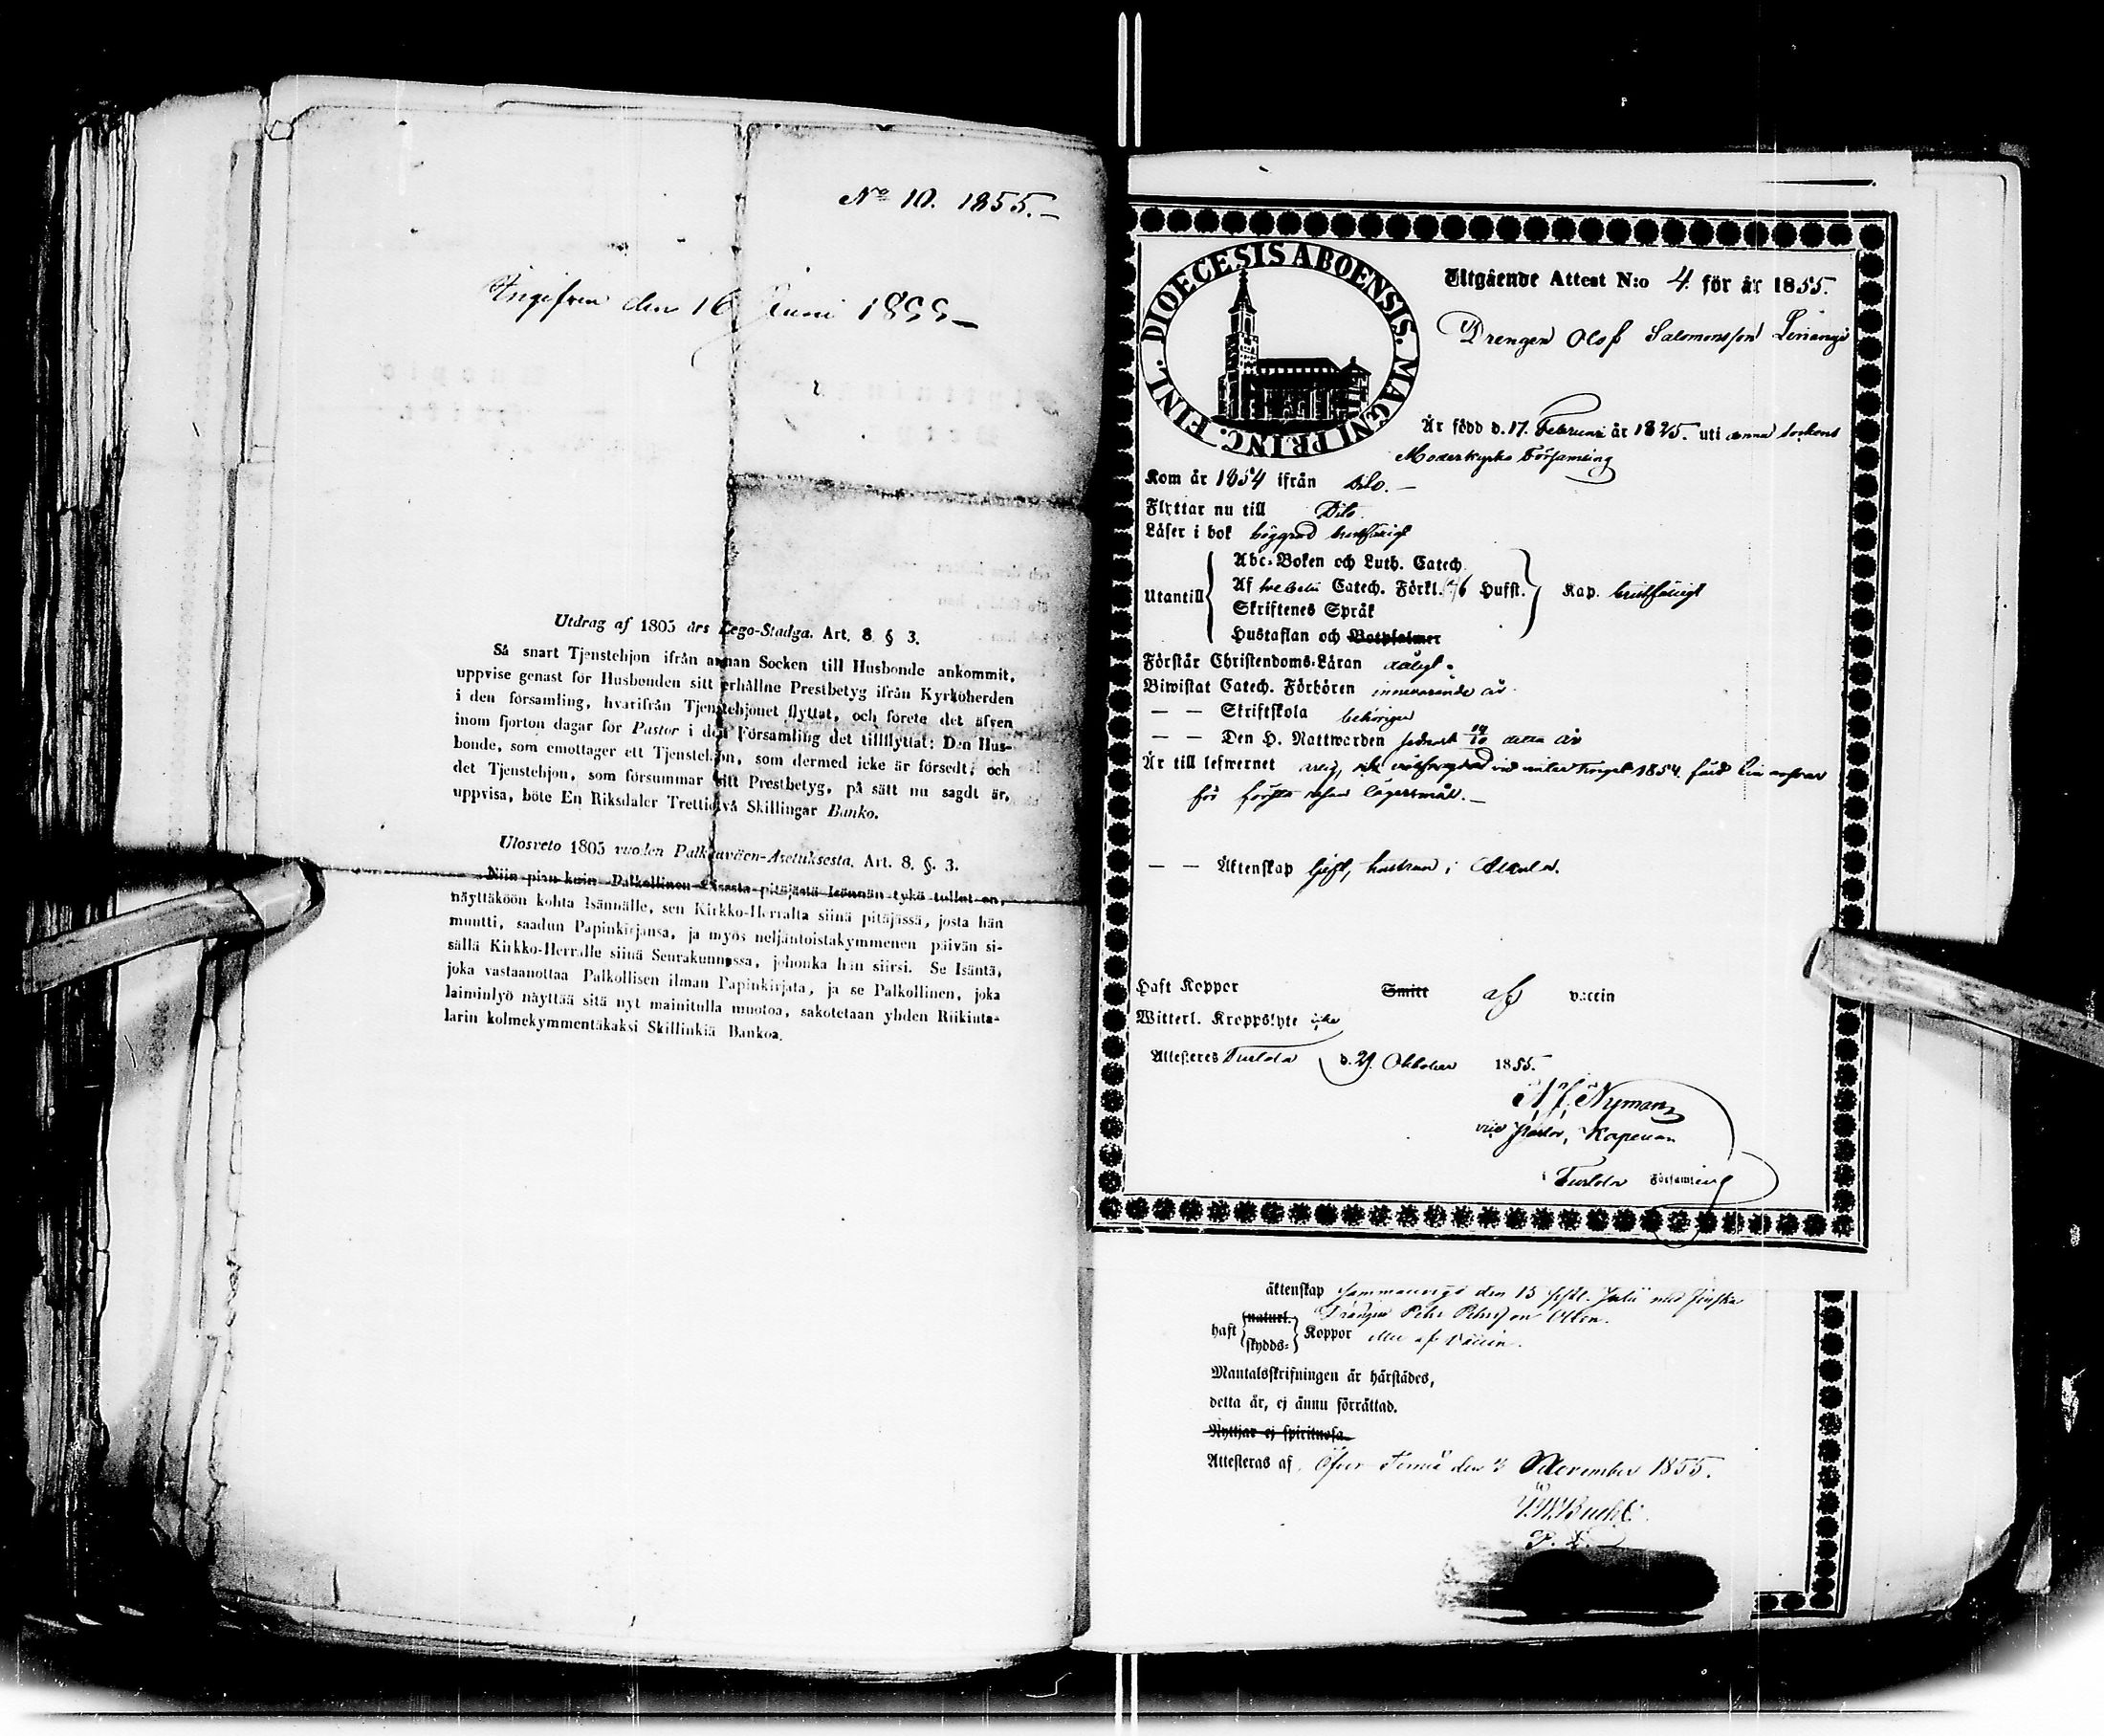 No 10. 1855.–
Ingifven den 16 Juni 1855–
Utdrag af 1805 års Lego-Stadga. Art. 8 § 3.
Så snart Tjenstehjon ifrån annan Socken till Husbonde ankommit,
uppvise genast för Husbonden sitt erhållne Prestbetyg ifrån Kyrkoherden
i den församling, hvarifrån Tjenstehjonet flyttat, och förete det äfven
inom fjorton dagar för Pastor i den Församling det tillflyttat: Den Hus-
bonde, som emottager ett Tjenstehjon, som dermed icke är försedt, och
det Tjenstehjon, som försummar sitt Prestbetyg, på sätt nu sagdt är,
uppvisa, böte En Riksdaler Trettiotvå Skillingar Banko.
Ulosveto 1805 vuoden Palkkaväen-Asetuksesta. Art. 8. §. 3.
Niin pian kuin Palkollinen toisesta pitäjästä Isännän tykö tullut on,
näyttäköön kohta Isännälle, sen Kirkko-Herralta siinä pitäjässä, josta hän
muutti, saadun Papinkirjansa, ja myös neljäntoistakymmenen päivän si-
sällä Kirkko-Herralle siinä Seurakunnassa, johonka hän siirsi. Se Isäntä,
joka vastaanottaa Palkollisen ilman Papinkirjata, ja se Palkollinen, joka
laiminlyö näyttää sitä nyt mainitulla muotoa, sakotetaan yhden Riikinta-
larin kolmekymmentäkaksi Skillinkiä Bankoa.
DIOECESIS ABOENSIS. MAGNI PRINC. FINL.
Utgående Attest N:o 4. för år 1855.
Drengen Olof Salomonsson
Är född d. 17. Februari år 1825. uti denna Sockens
Moderkyrko Församling
Kom år 1854 ifrån Dito. –
Flyttar nu till Dito.
Läser i bok
Utantill
Abc-Boken och Luth. Catech.
Af Catech. Förkl. 6 Hufst. Kap.
Skriftenes Språk
Hustaflan och Botpsalmer
Förstår Christendoms-Läran
Biwistat Catech. Förhören innevarande år.
— — Skriftskola behörigen
— — Den H. Nattwarden sednast detta år
Är till lefwernet vid vinter Tinget 1854
för första resan lägersmål. –
— — Äktenskap gift, hustrun i
Haft Koppor Smitt af vaccin
Witterl. Kroppslyte icke
Attesteres d. 29. Oktober 1855.
Nyman
vice Pastor, Kapellan
i Församling
äktenskap den 15 Julii med
Drängen Pehr Pehrsson
haft naturl. skydds- Koppor eller af Vaccin.
Mantalsskrifningen är härstädes,
detta år, ej ännu förrättad.
Nyttjar ej spirituosa.
Attesteras af, den November 1855.